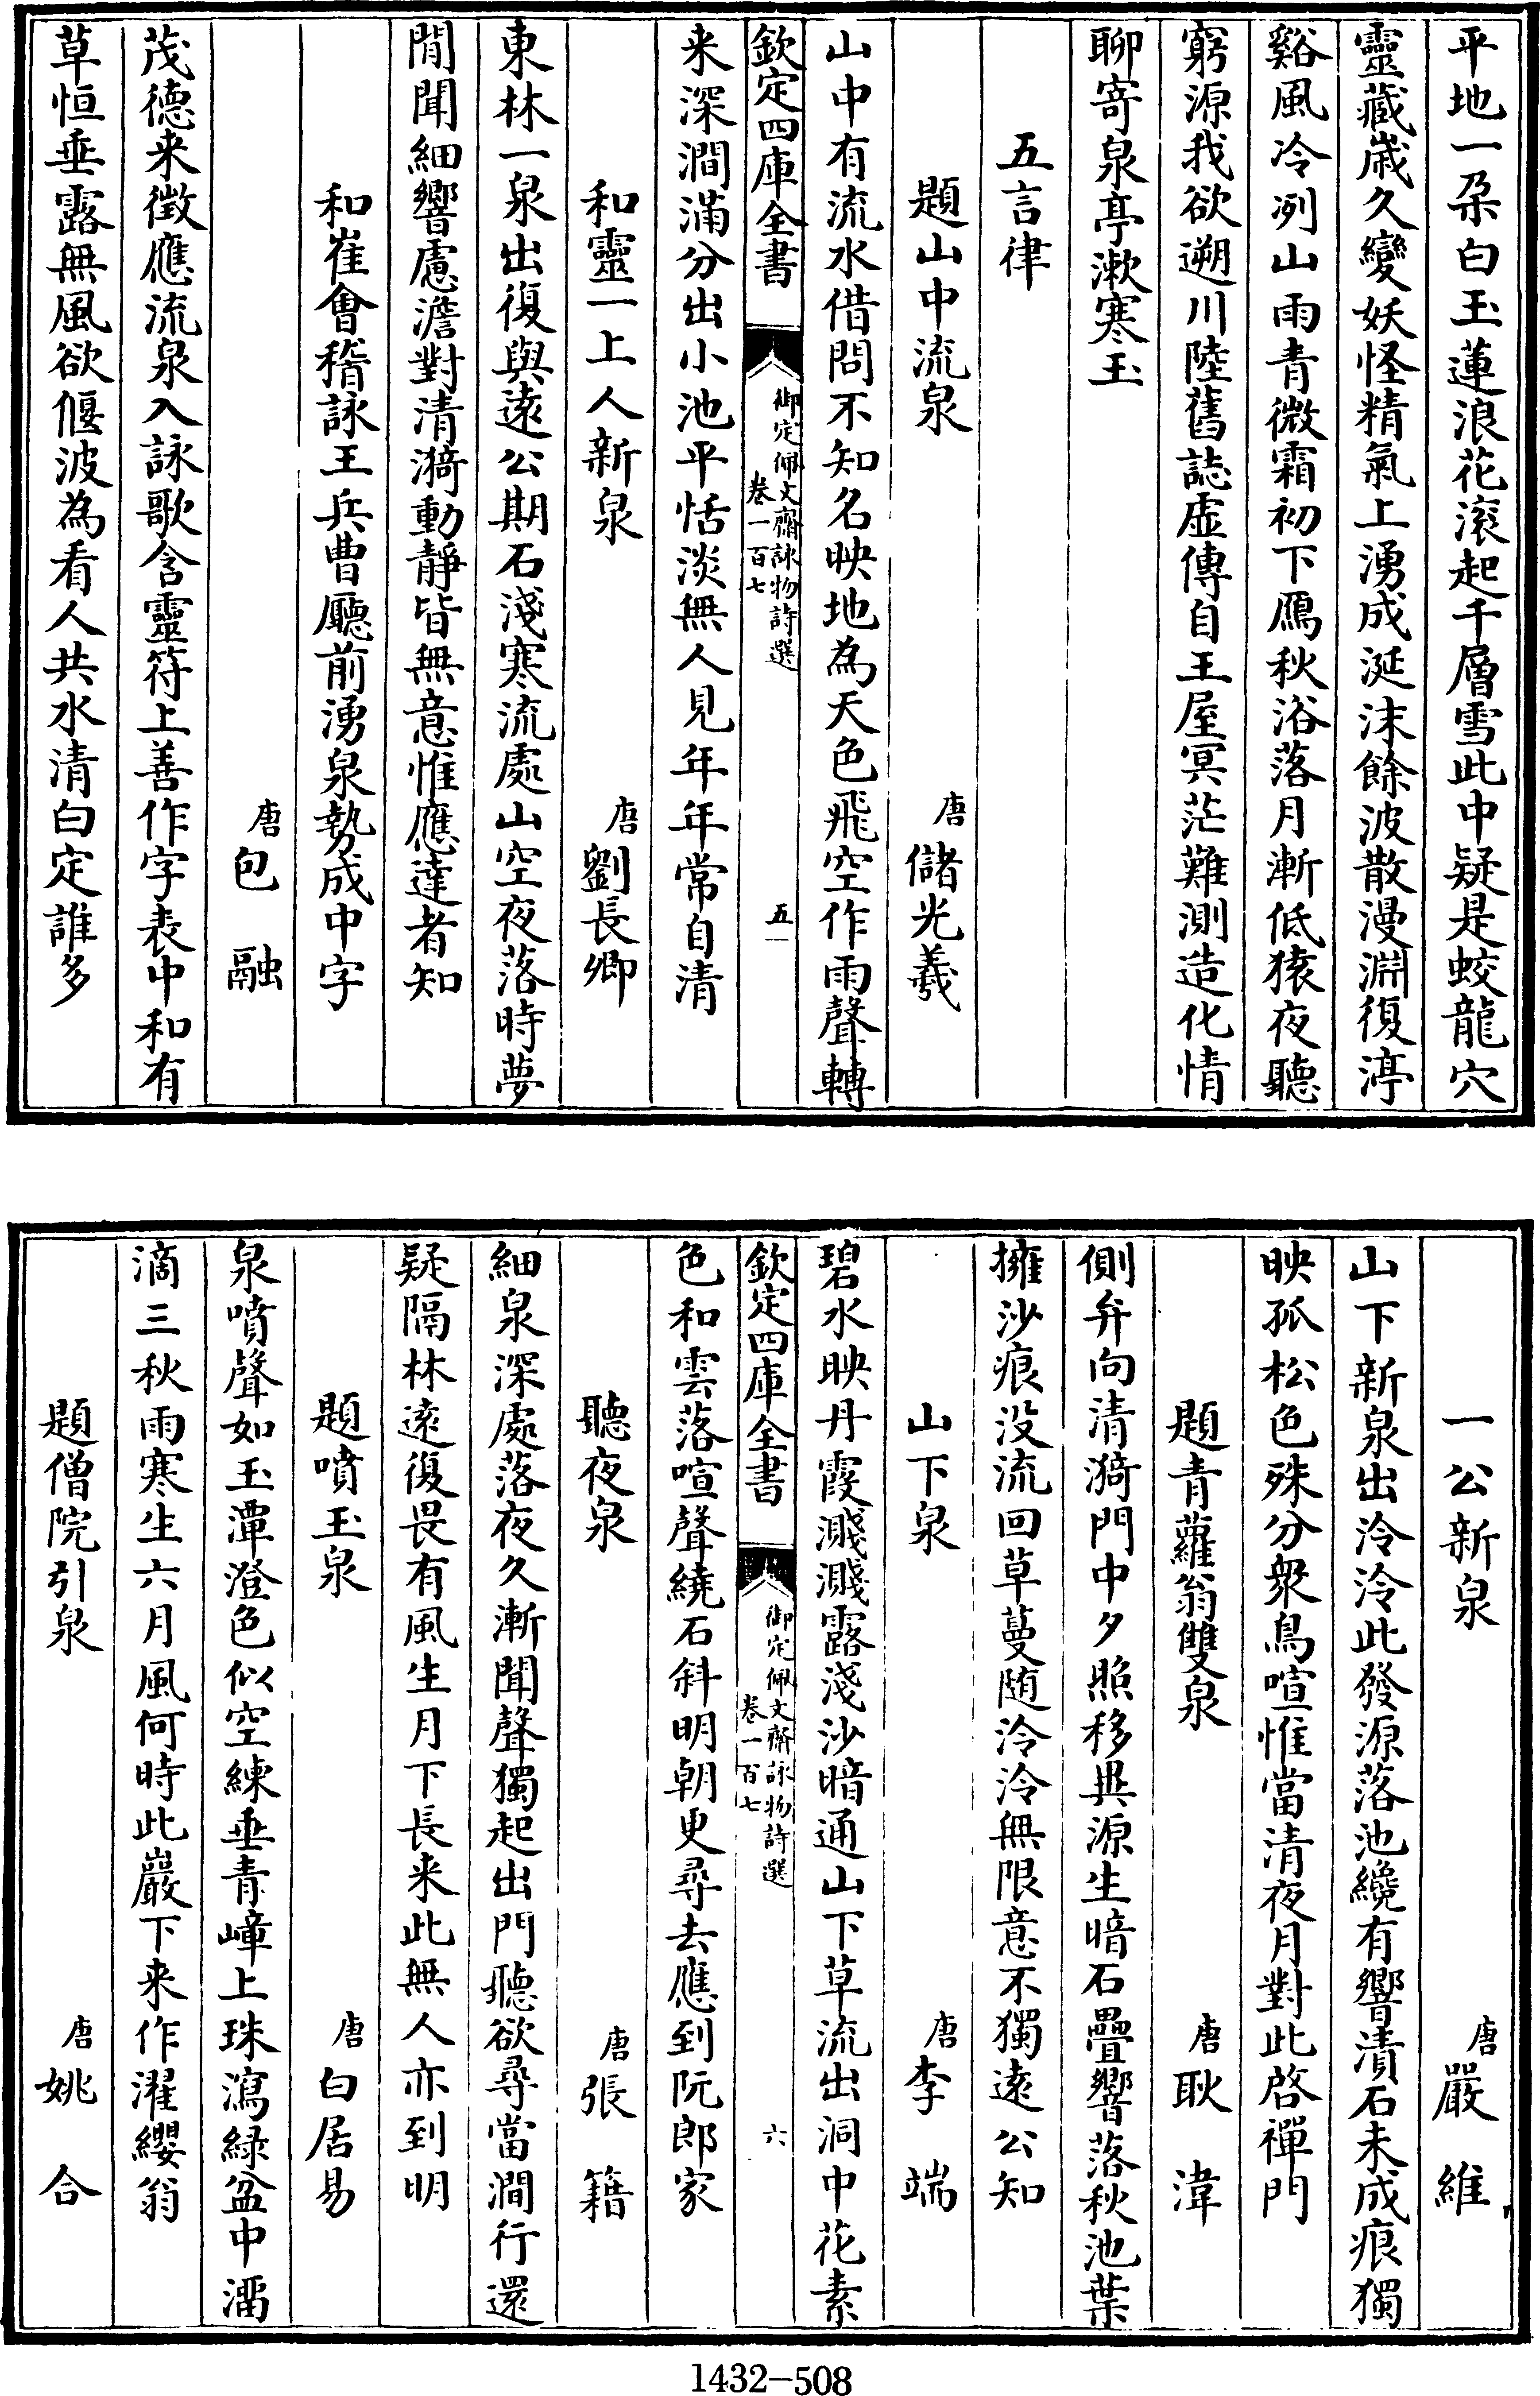 平地一朶白玉蓮浪花滚起千層雪此中疑是蛟龍穴
靈藏歲久變妖怪精氣上湧成涎沫餘波散漫淵復渟
谿風冷冽山雨青微霜初下鴈秋浴落月漸低猿夜聽
窮源我欲遡川陸舊誌虛傳自王屋冥茫難測造化情
聊寄泉亭漱寒玉
五言律
題山中流泉
唐儲光羲
山中有流水借問不知名映地為天色飛空作雨聲轉
欽定四庫全書
御定佩文齋詠物詩選
卷一百七
五
来深澗滿分出小池平恬淡無人見年年常自清
和靈一上人新泉
唐劉長卿
東林一泉出復與遠公期石淺寒流處山空夜落時夢
閒聞細響慮澹對清漪動靜皆無意惟應達者知
和崔會稽詠王兵曹廳前湧泉勢成中字
唐包融
茂德来徴應流泉入詠歌含靈符上善作字表中和有
草恒垂露無風欲偃波為看人共水清白定誰多
一公新泉
唐嚴維
山下新泉出泠泠此發源落池纔有響漬石未成痕獨
映孤松色殊分衆鳥喧惟當清夜月對此啓禪門
題青蘿翁雙泉
唐耿湋
側弁向清漪門中夕照移異源生暗石疊響落秋池葉
擁沙痕没流回草蔓随泠泠無限意不獨遠公知
山下泉
唐李端
碧水映丹霞濺濺露淺沙暗通山下草流出洞中花素
欽定四庫全書
御定佩文齋詠物詩選
卷一百七
六
色和雲落喧聲繞石斜明朝更尋去應到阮郎家
聽夜泉
唐張籍
細泉深處落夜久漸聞聲獨起出門聽欲尋當澗行還
疑隔林遠復畏有風生月下長来此無人亦到明
題噴玉泉
唐白居易
泉噴聲如玉潭澄色似空練垂青嶂上珠瀉綠盆中溜
滴三秋雨寒生六月風何時此巖下来作濯纓翁
題僧院引泉
唐姚合
1432-508